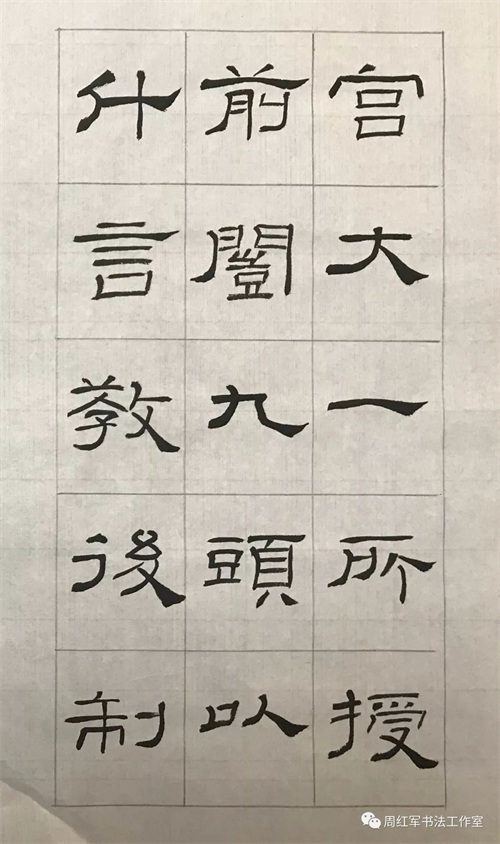 宫大一所授
前闓九頭以
什言教後制
周红军书法工作室